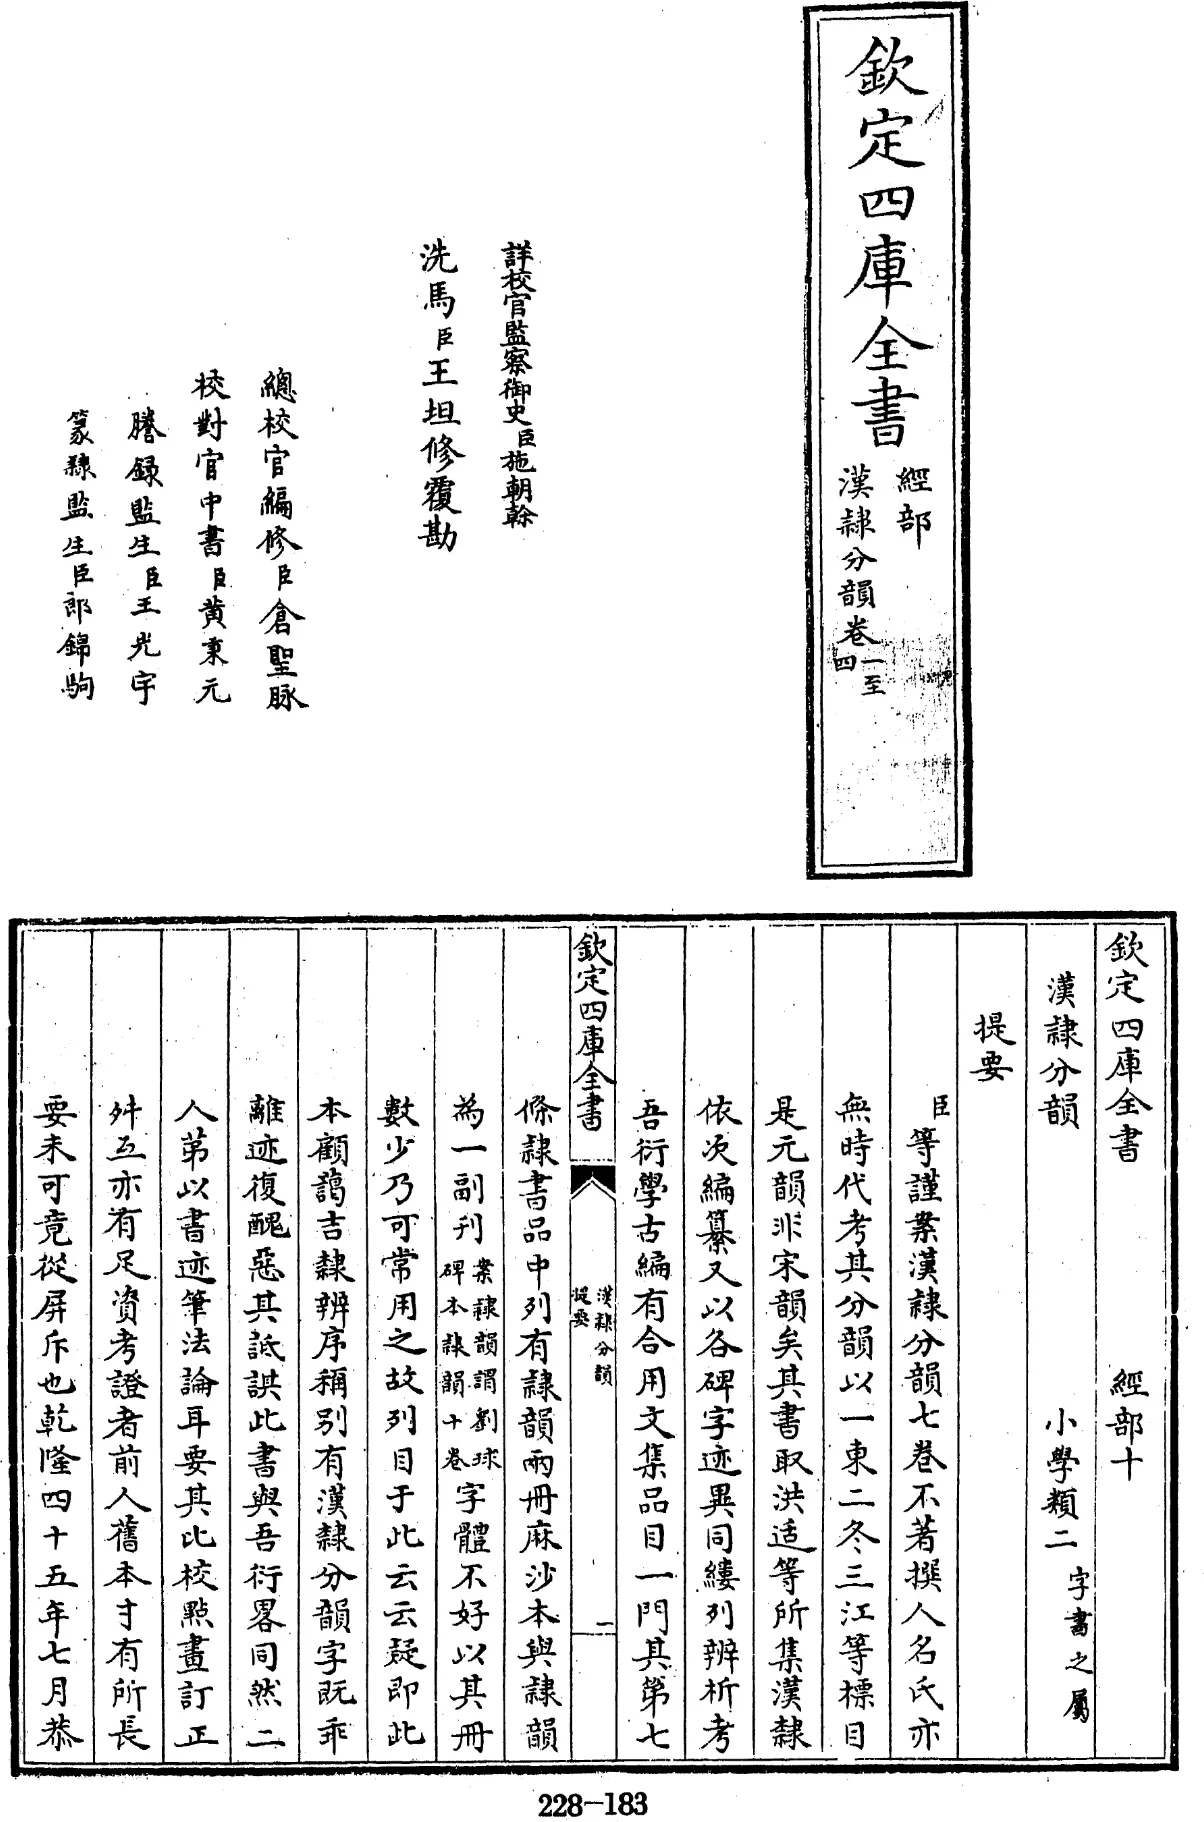 欽定四庫全書
經部
漢隸分韻卷一至四
詳校官監察御史臣施朝幹
洗馬臣王坦修覆勘
總校官編修臣倉聖脉
校對官中書臣黄秉元
謄録監生臣王光宇
篆隸監生臣郎錦駒
欽定四庫全書 經部十
漢隸分韻 小學類二 字書之屬
提要
臣等謹案漢隸分韻七卷不著撰人名氏亦
無時代考其分韻以一東二冬三江等標目
是元韻非宋韻矣其書取洪适等所集漢隸
依次編纂又以各碑字迹異同縷列辨析考
吾衍學古編有合用文集品目一門其第七
欽定四庫全書 漢隸分韻 提要 一
條隸書品中列有隸韻兩冊麻沙本與隸韻
為一副刋案隸韻謂劉球碑本隸韻十卷字體不好以其冊
數少乃可常用之故列目于此云云疑即此
本顧藹吉隸辨序稱别有漢隸分韻字既乖
離迹復醜惡其詆諆此書與吾衍畧同然二
人第以書迹筆法論耳要其比校點畫訂正
舛互亦有足資考證者前人舊本寸有所長
要未可竟從屏斥也乾隆四十五年七月恭
228-183